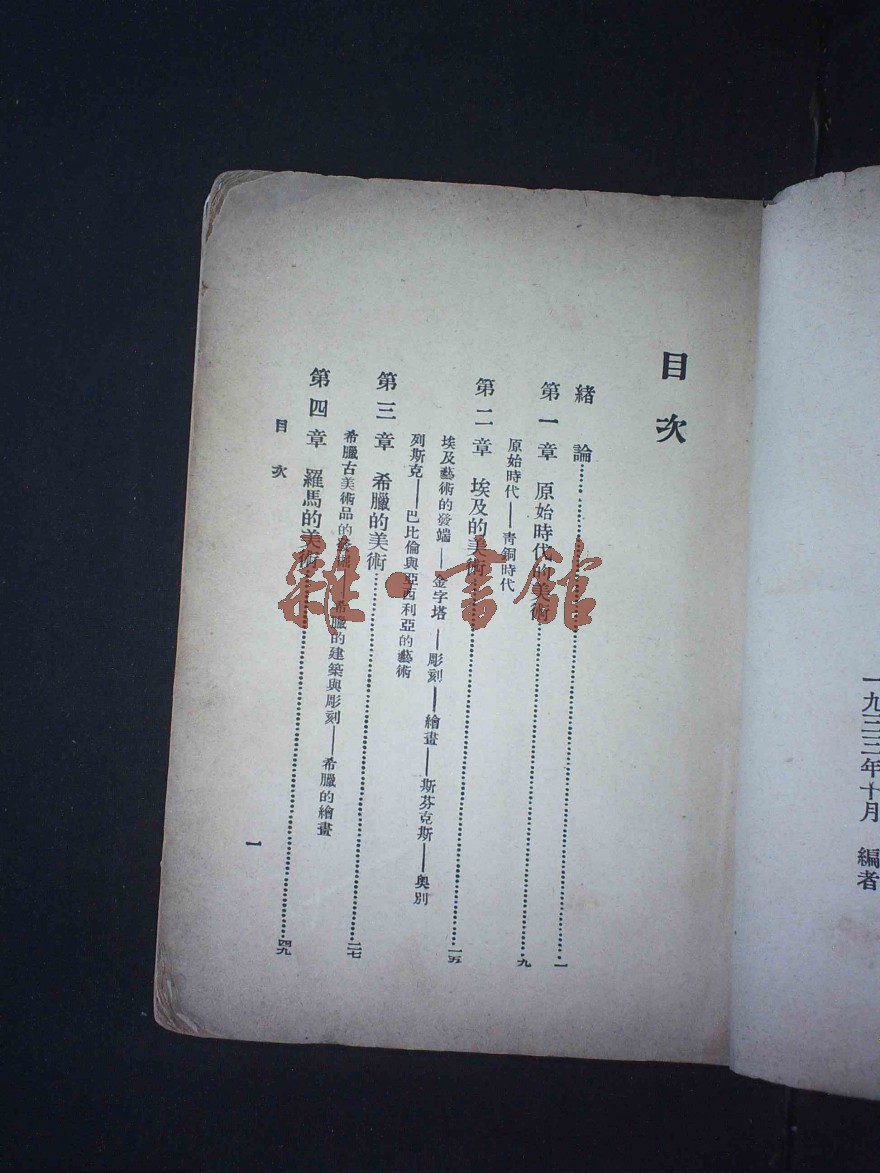 一九三三年十月 編者
目次
緒論……一
第一章 原始時代的美術……九
原始時代——青銅時代
第二章 埃及的美術……一五
埃及藝術的發端——金字塔——彫刻——繪畫——斯芬克斯——奧別
列斯克——巴比倫與亞西利亞的藝術
第三章 希臘的美術……二七
希臘古美術品的——希臘的建築與彫刻——希臘的繪畫
第四章 羅馬的美術……四九
目次
一
雜·書館